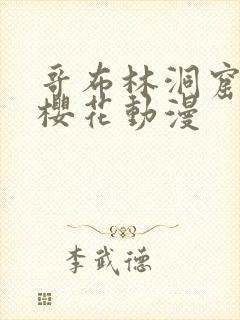 哥布林洞窟
樱花動漫
李武德